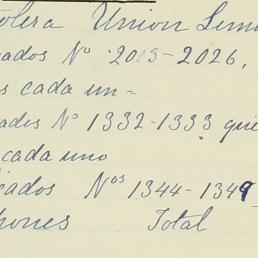 olera Union Lim
cados Nº 2013-2026,
s cada un=
ados Nº 1332-1333 que
cada uno
cados Nos 1344-1349
hones Total